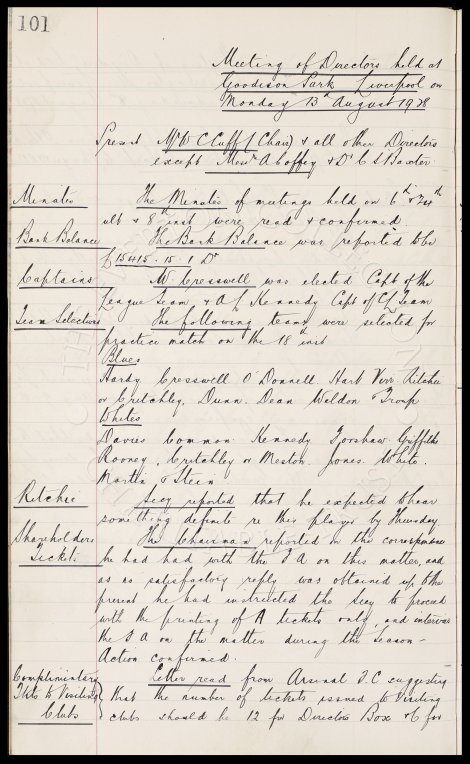 101
Meeting of Directors held at
Goodison Park Liverpool on
Monday 13th August 1928
Present Mr W C Cuff (Chair) & all other Directors
except Messrs A Coffey & Dr C S Baxter
Minutes The Minutes of meetings held on 6th & 24th
ult & 8 inst were read & confirmed.
Bank Balance The Bank Balance was reported to be
£15415. 15. 1 Dr
Captains W. Cresswell was elected Capt of the
League Team & A L Kennedy Capt of CL Team
Team Selections The following teams were selected for
practice match on the 18th inst
Blues
Hardy Cresswell O'Donnell. Hart Virr Ritchie
or Critchley, Dunn. Dean Weldon & Troup
Whites
Davies Common Kennedy Griffiths
Rooney, Critchley or Meston. Jones. White.
Martin & Stein
Ritchie Secy reported that he expected to hear
something definite re this player by Thursday
Shareholders The Chairman reported on the correspondence
Tickets. he had had with the FA on this matter, and
as no satisfactory reply was obtained up to the
present he had instructed the Secy to proceed
with the printing of A tickets only, and interview
the FA on the matter during the season-
Action confirmed.
Complimentary Letter read from Arsenal F.C suggesting
Tkts to Visiting that the number of tickets issued to visiting
Clubs clubs should be 12 for Directors Box & 6 for